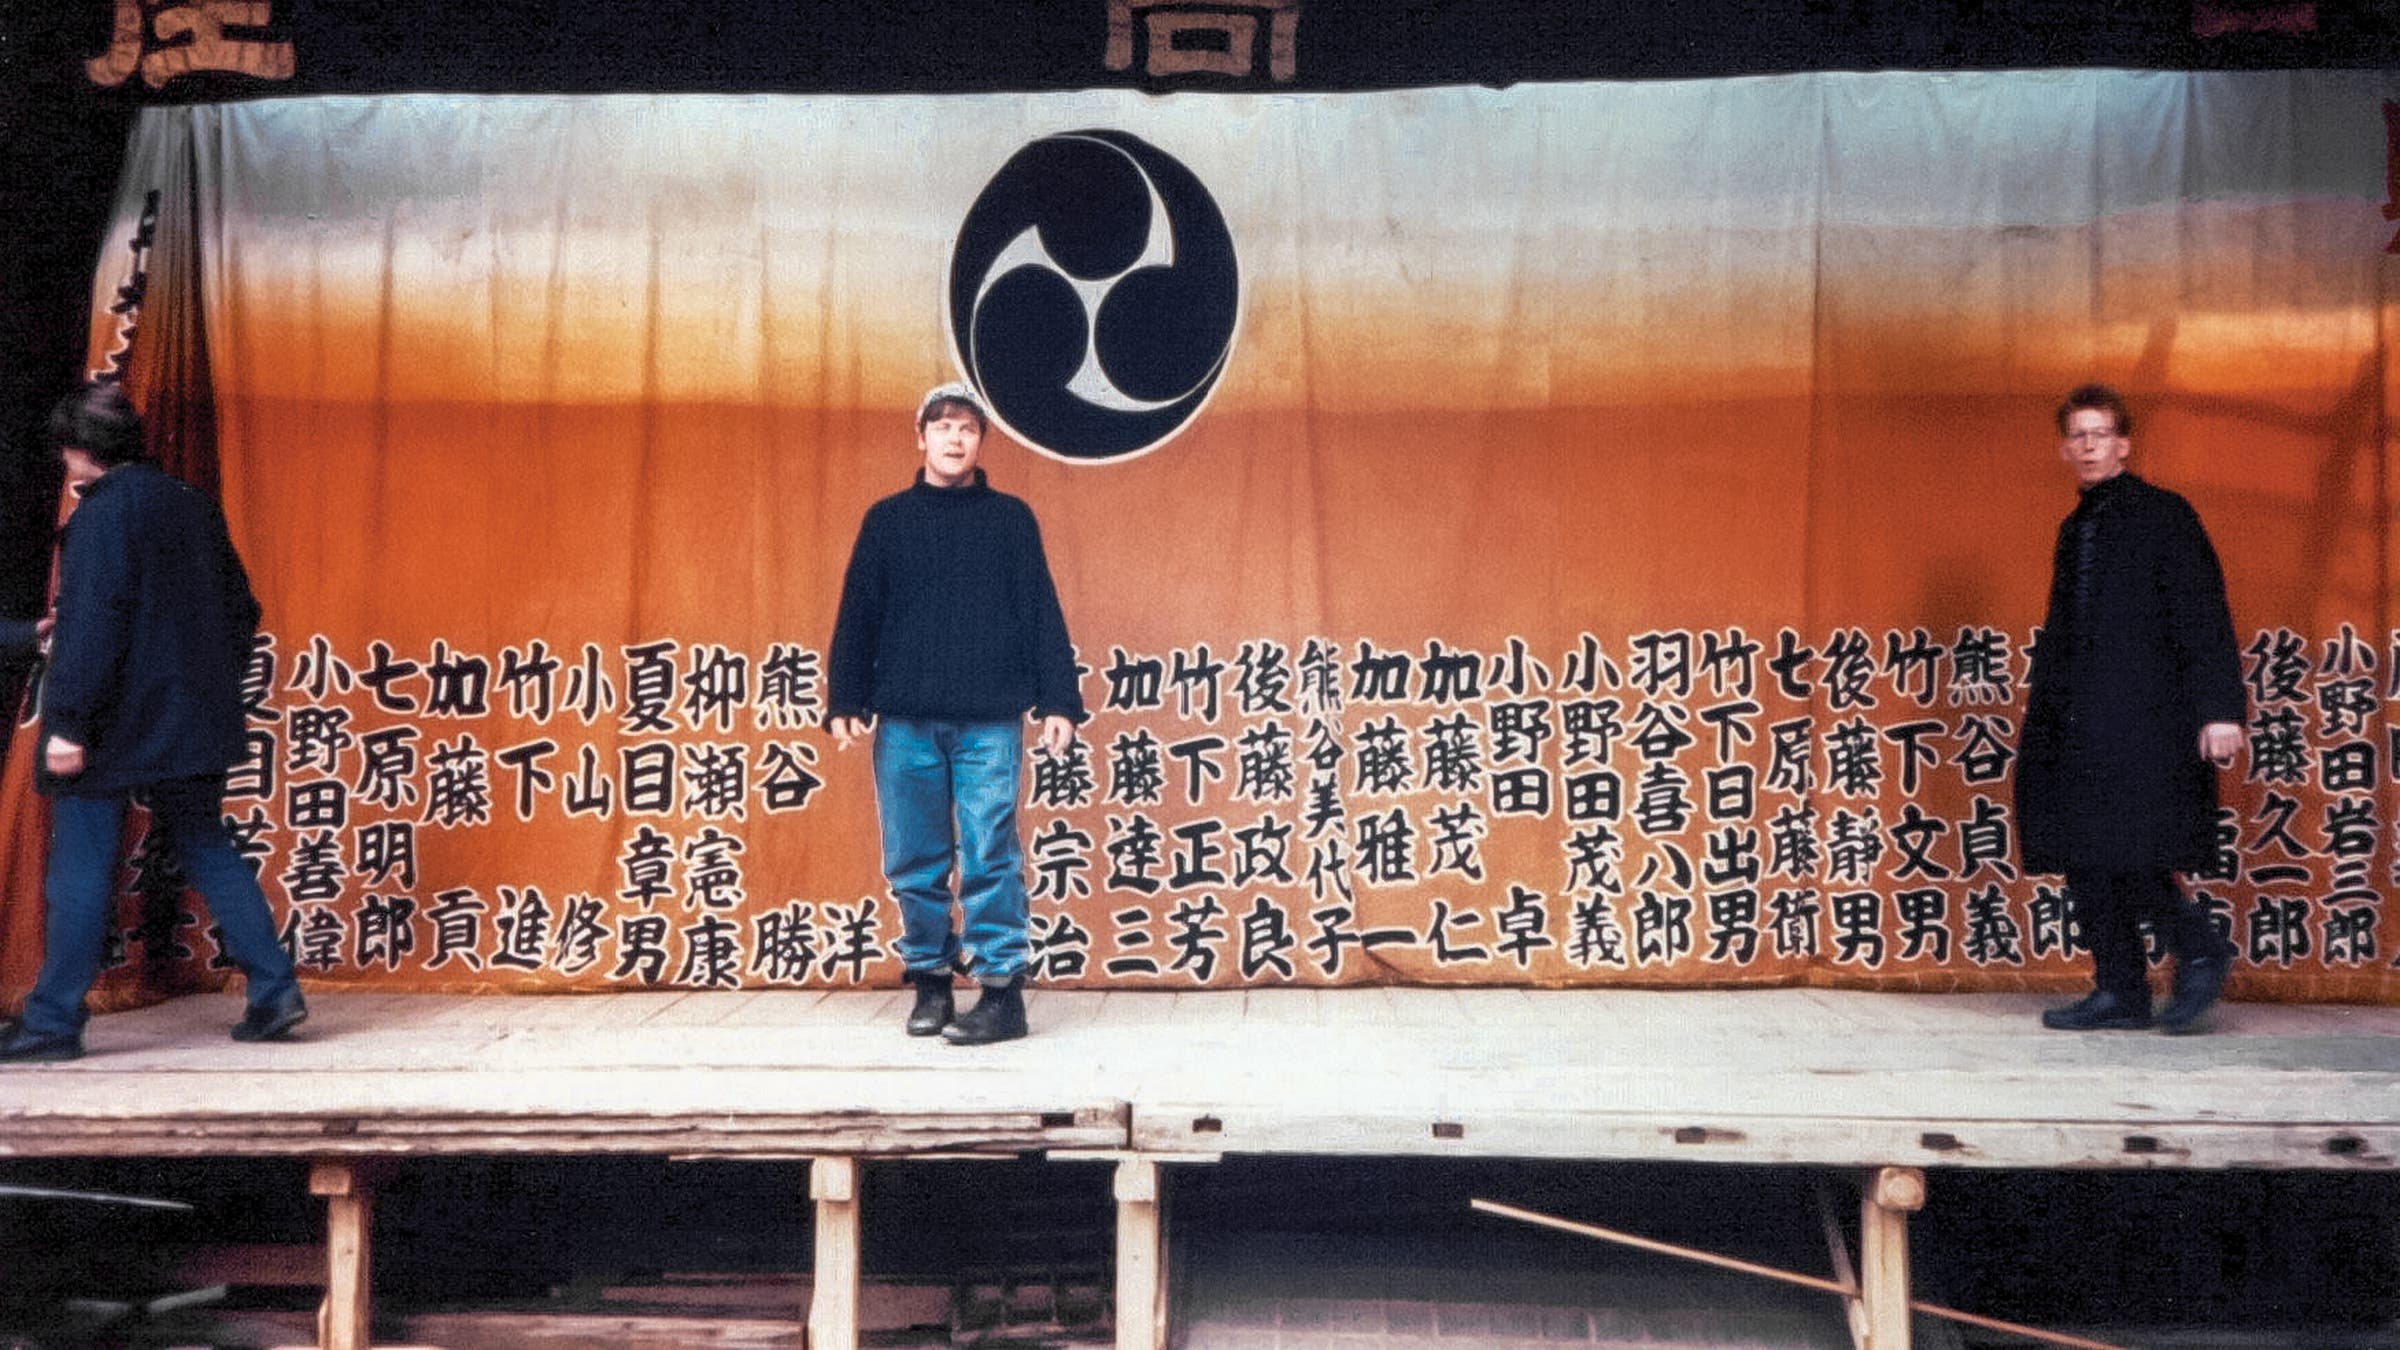 小野田岩三郎
後藤久一郎
郎
熊谷貞義
竹下文男
後藤靜男
七原藤衛
竹下日出男
羽谷喜八郎
小野田茂義
小野田卓
加藤茂仁
加藤雅一
熊谷美代子
後藤政良
竹下正芳
加藤達三
藤宗治
洋
熊谷勝
柳瀬憲康
夏目章男
小山修
竹下進
加藤貢
七原明郎
小野田善偉
夏目